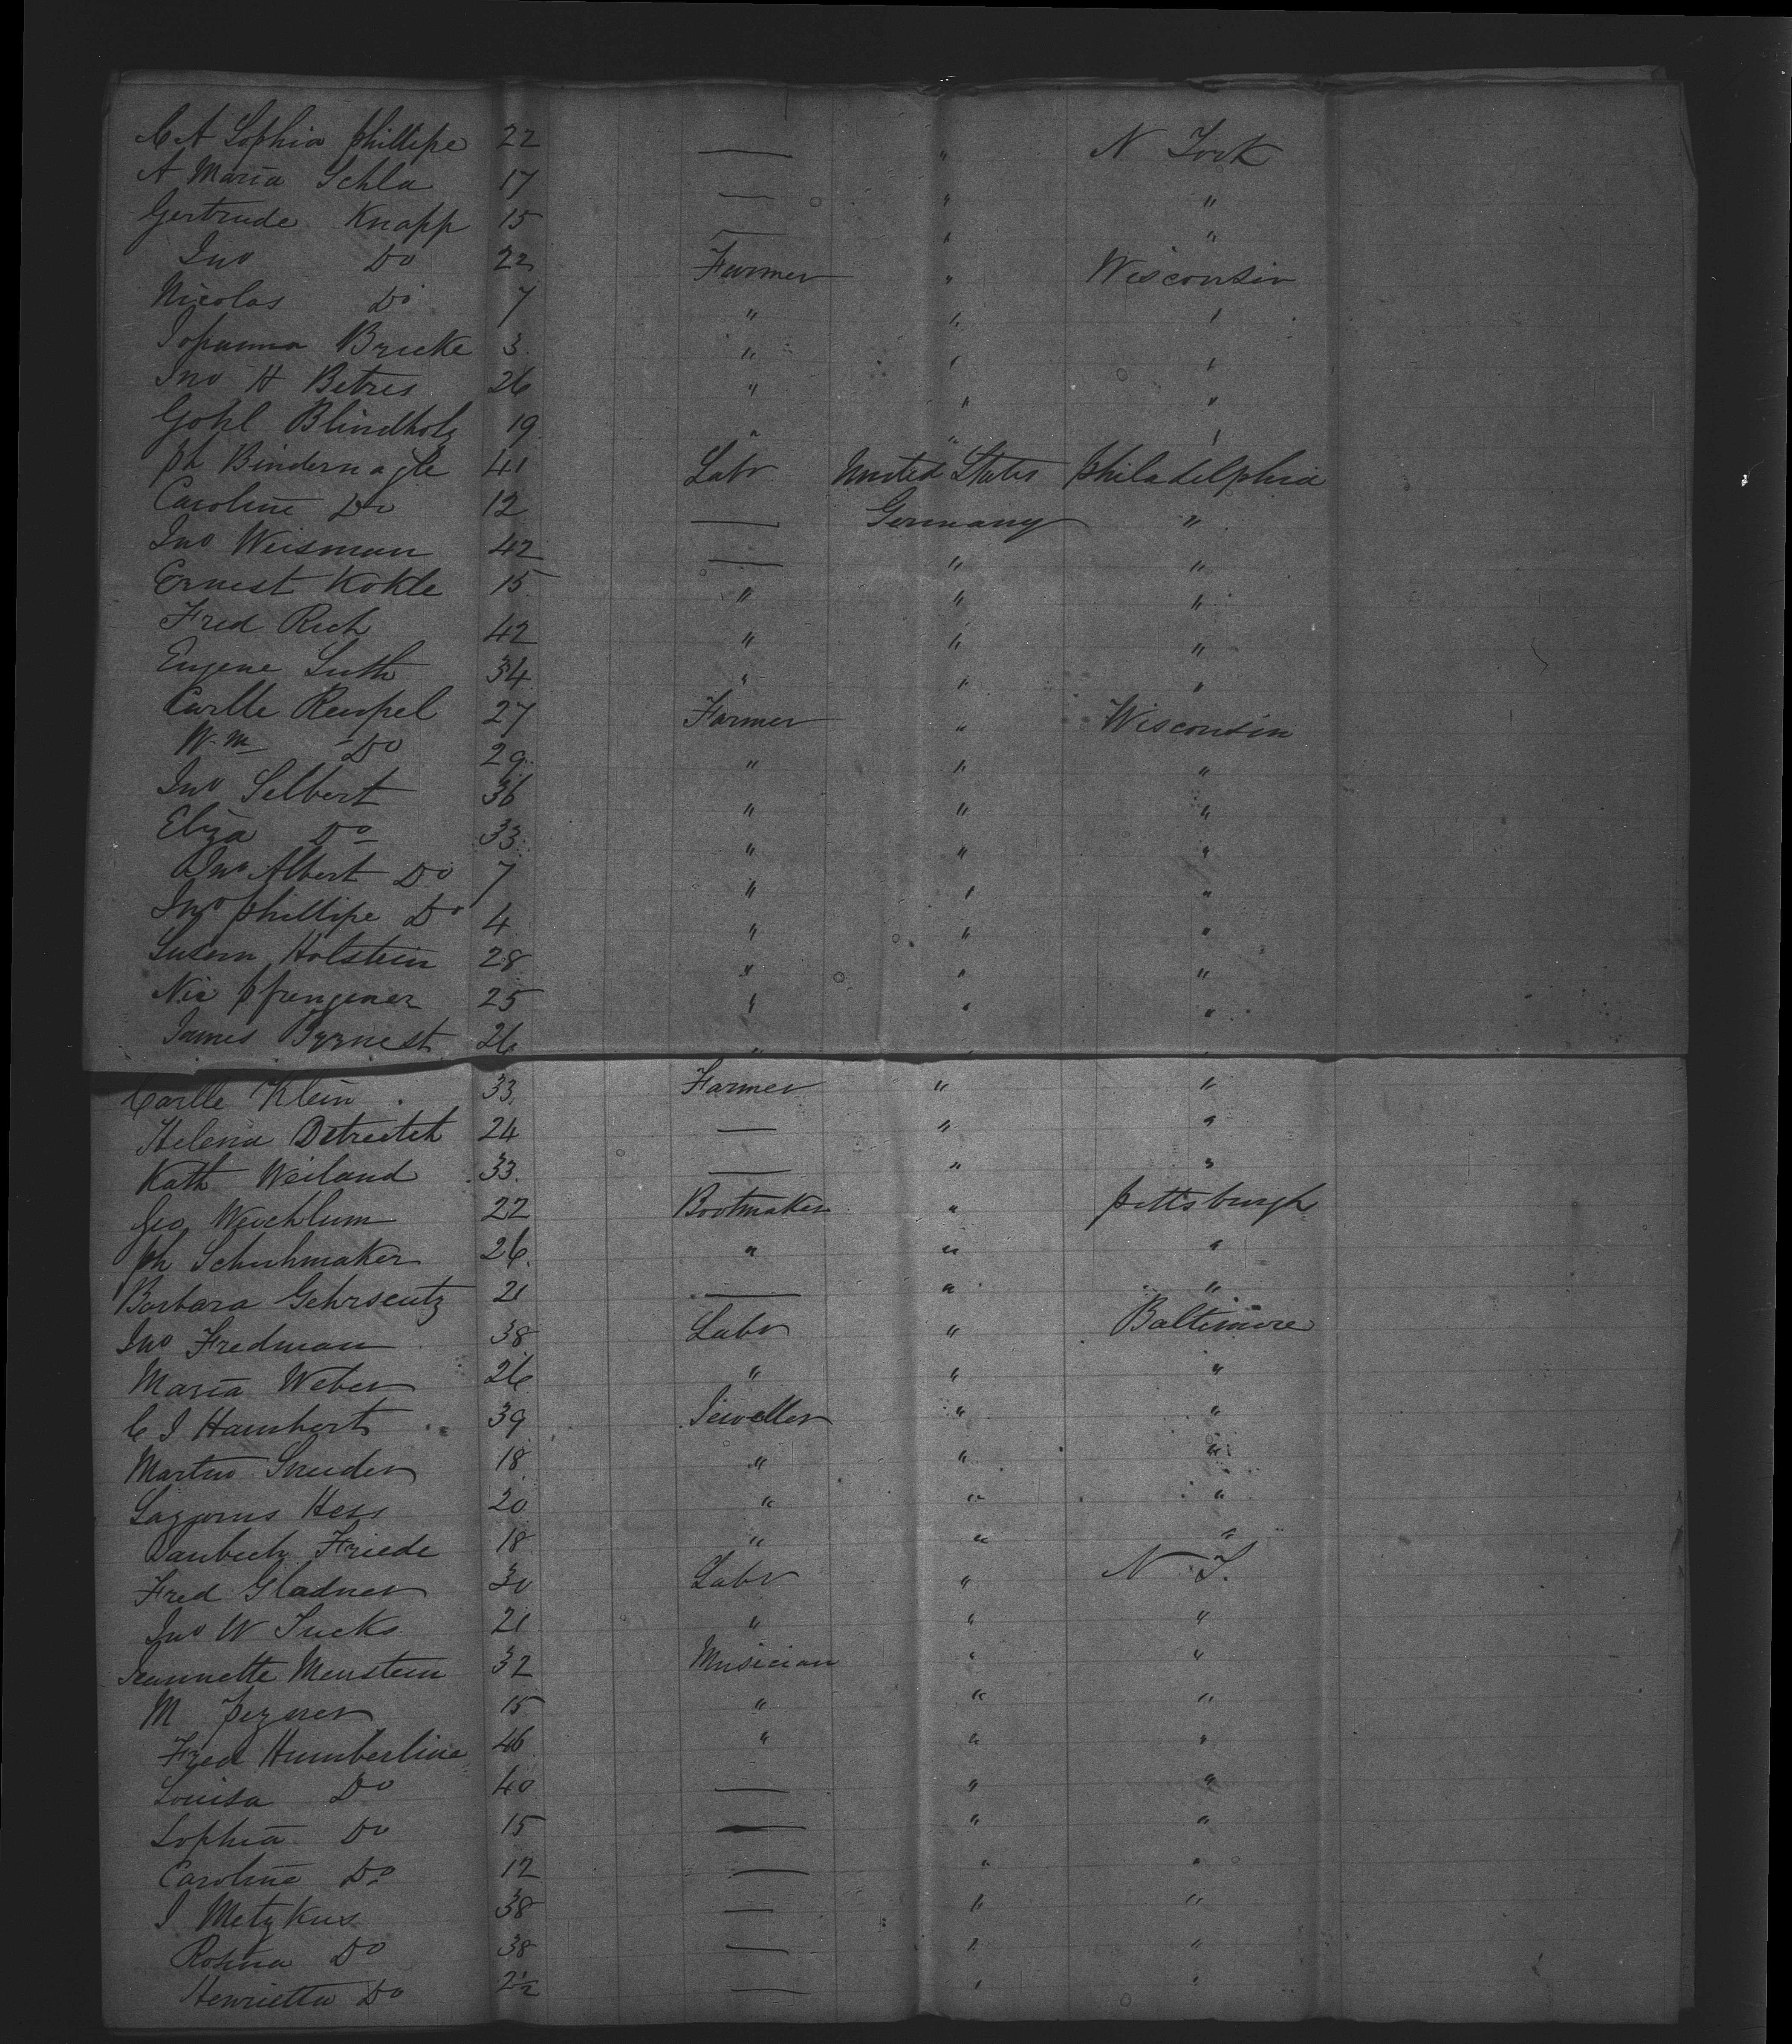 C A Sophia Phillipe 22 — " N York
A Maria Schla 17 — " "
Gertrude Knapp 15 — " "
Jno Do 22 Farmer " Wisconsin
Nicolas Do 7 " " "
Johanna Bricke 3 " " "
Jno H Betres 26 " " "
Gohl Blindholz 19 " " "
Ph Bindernagle 41 Labr United States Philadelphia
Caroline Do 12 — Germany "
Jno Weisman 42 — " "
Ernest Kokle 15 " " "
Fred Rich 42 " " "
Eugene Luth 34 " " "
Carlle Reupel 27 Farmer " Wisconsin
Wm Do 29 " " "
Jno Selbert 36 " " "
Eliza Do 33 " " "
Jno Albert Do 7 " " "
Jno Phillipe Do 4 " " "
Susan Holstein 28 " " "
Nic Pfrengener 25 " " "
James Byrnest 26 " " "
Carlle Klein 33 Farmer " "
Helena Detrectet 24 — " "
Kath Weiland 33 — " "
Geo Weichlum 22 Bootmaker " Pittsburgh
Ph Schuhmaker 26 " " "
Barbara Gehrseutz 21 — " "
Jno Fredman 38 Labr " Baltimore
Maria Weber 26 " " "
C J Hambert 39 Jeweller " "
Martin Snuder 18 " " "
Lazzarus Hess 20 " " "
Daubech Friede 18 " " "
Fred Gladner 30 Labr " N Y.
Jno W Fucks 21 " " "
Jeannette Menstein 32 Musician " "
M Pezner 15 " " "
Fred Humberline 46 " " "
Louisa Do 40 — " "
Sophia Do 15 — " "
Caroline Do 12 — " "
J Metzkus 38 — " "
Rosina Do 38 — " "
Henrietta Do 2½ — " "